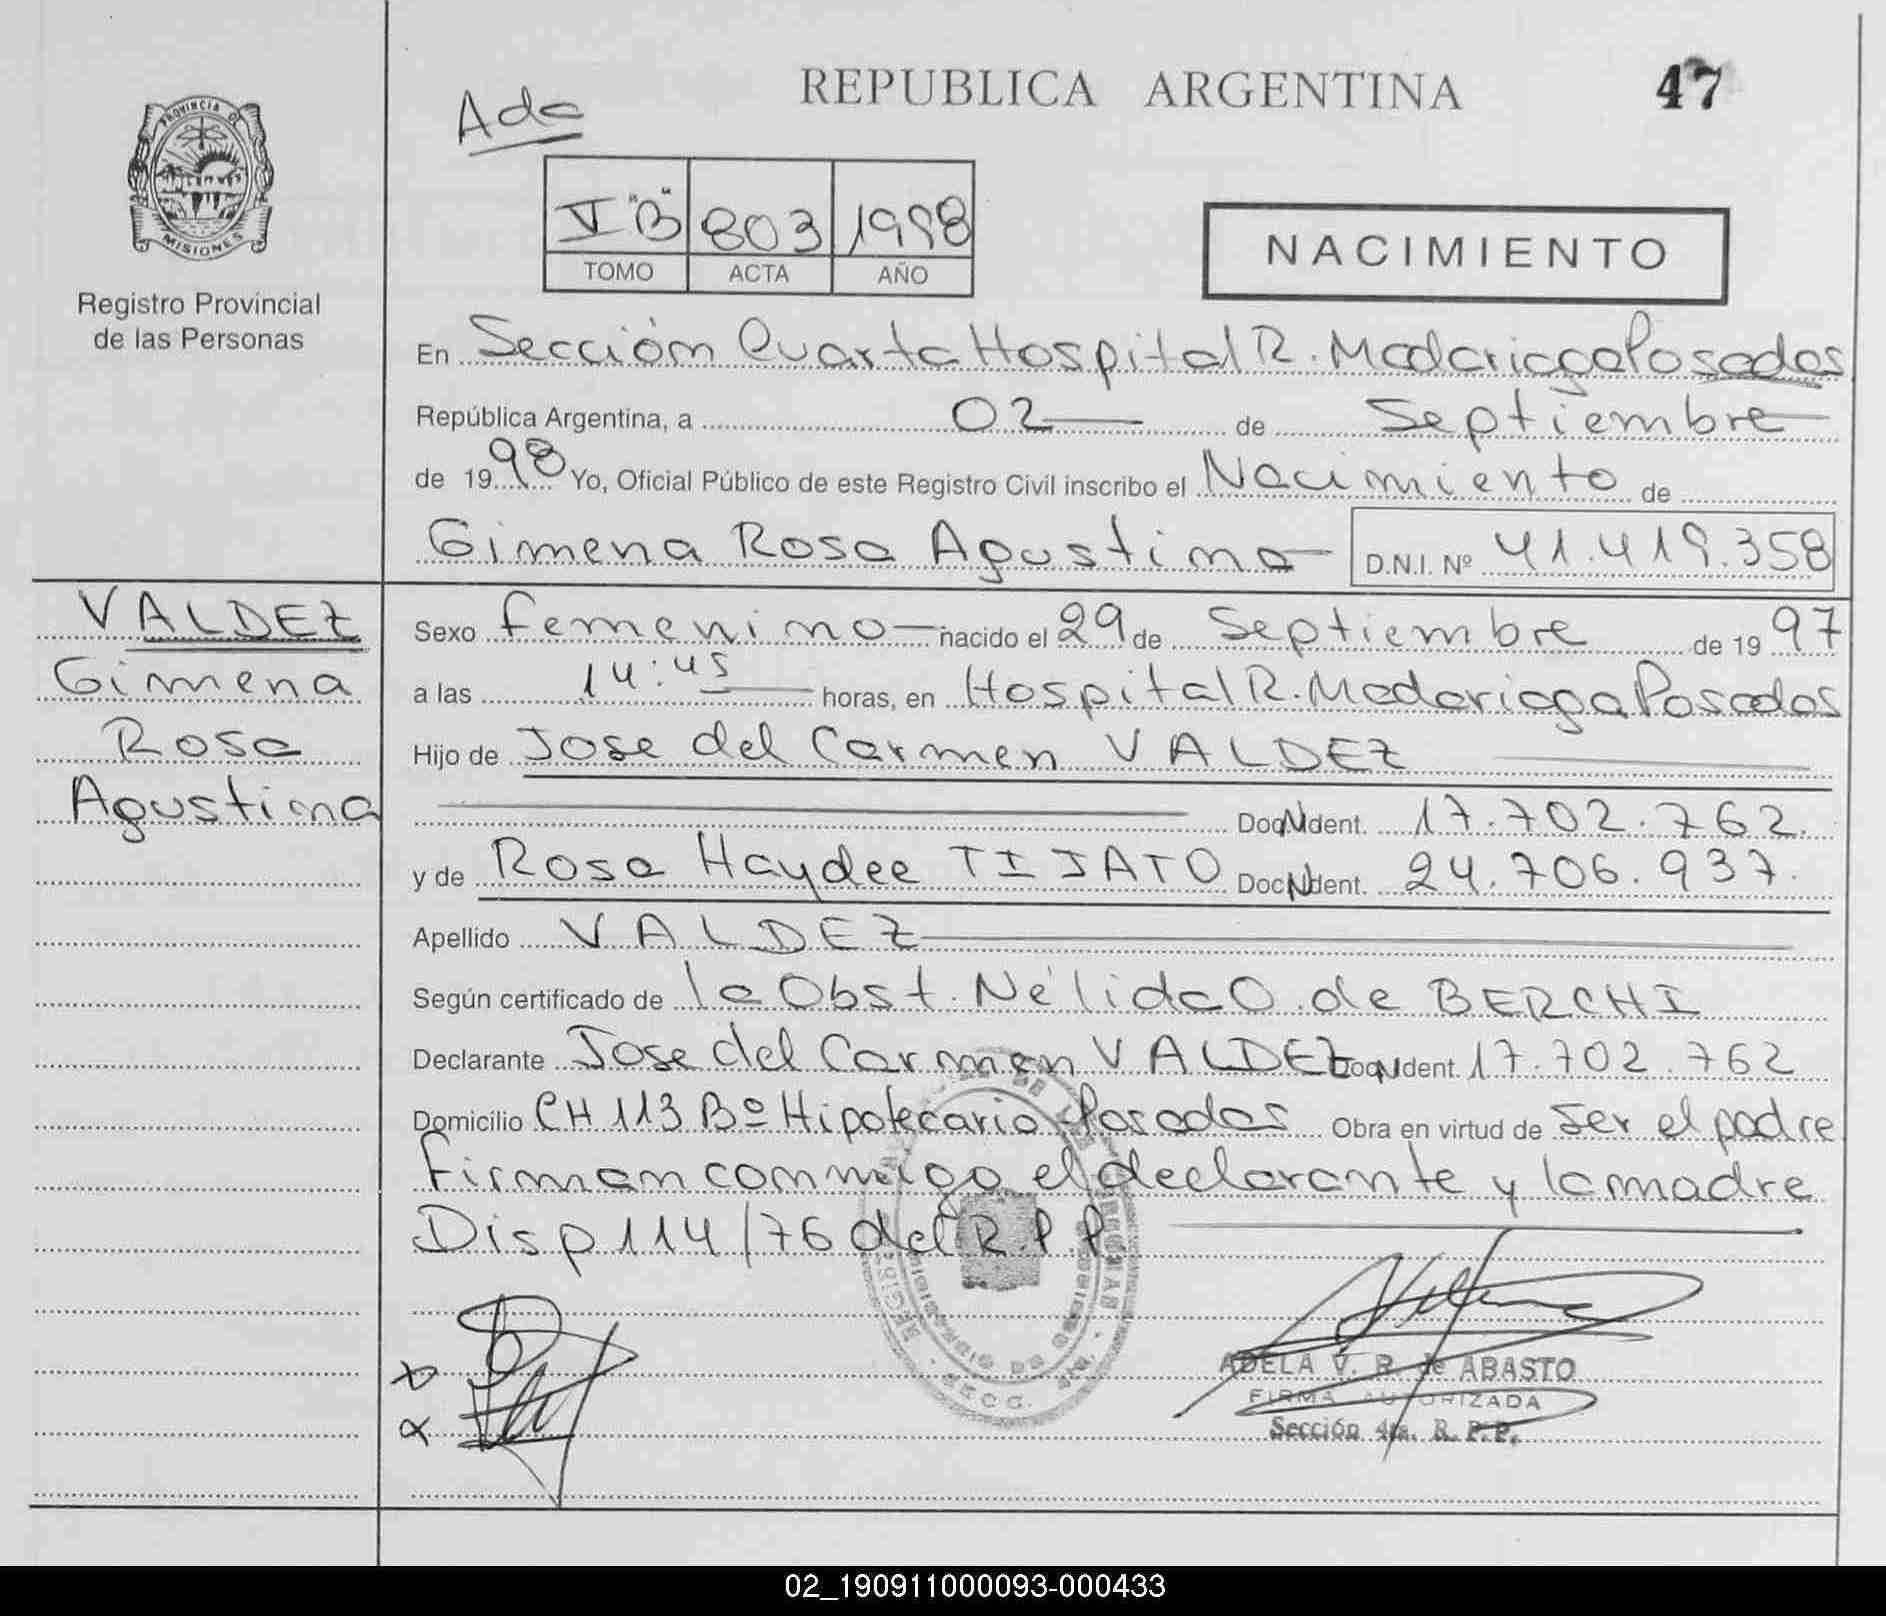 REPUBLICA ARGENTINA
47
Ada
V "B" 803 1998
TOMO ACTA AÑO
NACIMIENTO
PROVINCIA DE
MISIONES
Registro Provincial
de las Personas
En Sección Cuarta Hospital R. Madariaga Posadas
República Argentina, a 02 de Septiembre
de 1998 Yo, Oficial Público de este Registro Civil inscribo el Nacimiento de
Gimena Rosa Agustina D.N.I. Nº 41.419.358
VALDEZ
Gimena
Rosa
Agustina
Sexo femenino nacido el 29 de Septiembre de 1997
a las 14:45 horas, en Hospital R. Madariaga Posadas
Hijo de Jose del Carmen VALDEZ
Doc. Ident. 17.702.762.
y de Rosa Haydee TIJATO Doc. Ident. 24.706.937.
Apellido VALDEZ
Según certificado de la Obst. Nélida O. de BERCHI
Declarante Jose del Carmen VALDEZ Doc. Ident. 17.702.762
Domicilio CH 113 Bº Hipotecario Posadas Obra en virtud de Ser el padre
Firman conmigo el declarante y la madre
Disp 114/76 del R.P.P.
ADELA V. R. de ABASTO
FIRMA AUTORIZADA
Sección 4ta. R. P. P.
02_190911000093-000433